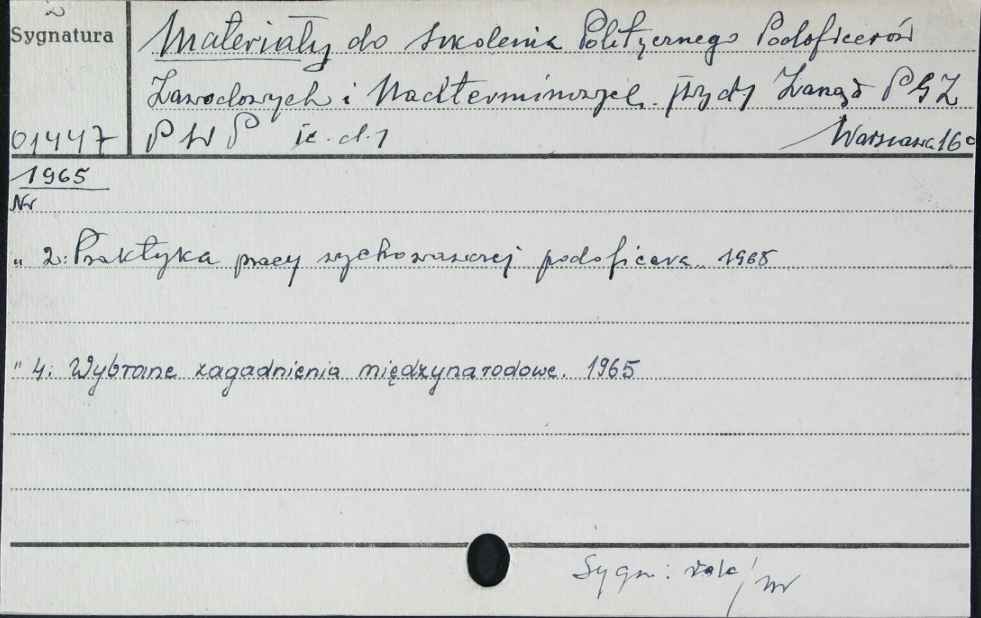 Sygnatura
Materiały do szkolenia Politycznego Podoficerów
Zawodowych i Nadterminowych. Zarząd
01447 Warszawa 16°
1965
Nr
„ 2: Praktyka pracy wychowawczej podoficera. 1965
" 4: Wybrane zagadnienia międzynarodowe. 1965
Sygn: rok/nr